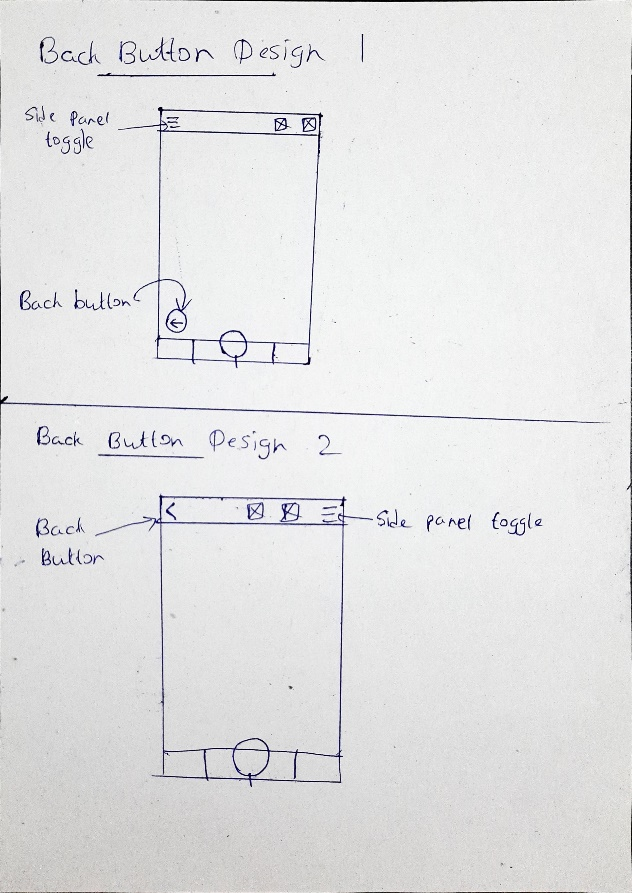 Back Button Design 1
Side panel
toggle
Back button
Back Button Design 2
Back
Button
Side panel toggle